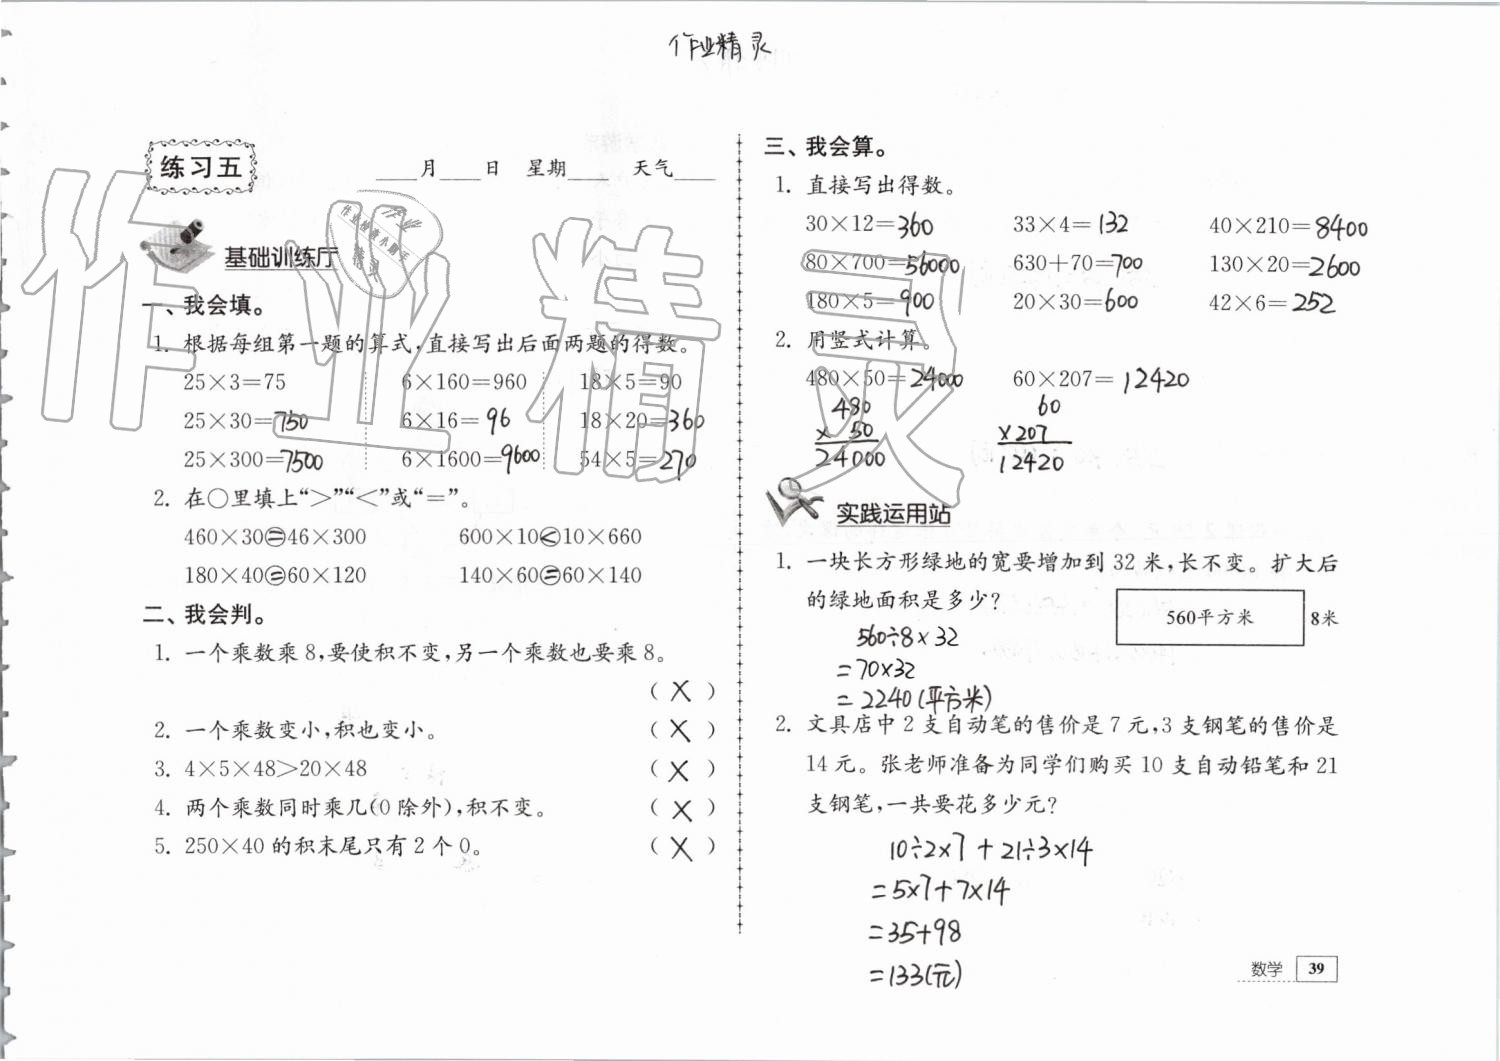 作业精灵
练习五
____月____日 星期____ 天气____
基础训练厅
一、我会填。
1. 根据每组第一题的算式,直接写出后面两题的得数。
25×3=75 6×160=960 18×5=90
25×30=750 6×16=96 18×20=360
25×300=7500 6×1600=9600 54×5=270
2. 在○里填上“>”“<”或“=”。
460×30=46×300 600×10<10×660
180×40=60×120 140×60=60×140
二、我会判。
1. 一个乘数乘8,要使积不变,另一个乘数也要乘8。
(X)
2. 一个乘数变小,积也变小。 (X)
3. 4×5×48>20×48 (X)
4. 两个乘数同时乘几(0除外),积不变。 (X)
5. 250×40的积末尾只有2个0。 (X)
三、我会算。
1. 直接写出得数。
30×12=360 33×4=132 40×210=8400
80×700=56000 630+70=700 130×20=2600
180×5=900 20×30=600 42×6=252
2. 用竖式计算。
480×50=24000 60×207=12420
480 60
× 50 ×207
24000 12420
实践运用站
1. 一块长方形绿地的宽要增加到32米,长不变。扩大后
的绿地面积是多少?
560平方米 8米
560÷8×32
=70×32
=2240(平方米)
2. 文具店中2支自动笔的售价是7元,3支钢笔的售价是
14元。张老师准备为同学们购买10支自动铅笔和21
支钢笔,一共要花多少元?
10÷2×7+21÷3×14
=5×7+7×14
=35+98
=133(元)
数学 39
作业精灵
作业
作业检查小助手
精灵